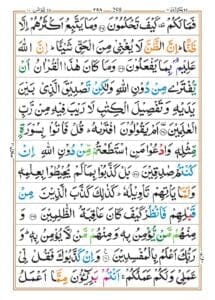 فَمَا لَكُمْ كَيْفَ تَحْكُمُوْنَ ۝ وَمَا يَتَّبِعُ اَكْثَرُهُمْ اِلَّا
ظَنًّا ؕ اِنَّ الظَّنَّ لَا يُغْنِيْ مِنَ الْحَقِّ شَيْـًٔا ؕ اِنَّ اللّٰهَ
عَلِيْمٌۢ بِمَا يَفْعَلُوْنَ ۝ وَمَا كَانَ هٰذَا الْقُرْاٰنُ اَنْ
يُّفْتَرٰى مِنْ دُوْنِ اللّٰهِ وَلٰكِنْ تَصْدِيْقَ الَّذِيْ بَيْنَ
يَدَيْهِ وَتَفْصِيْلَ الْكِتٰبِ لَا رَيْبَ فِيْهِ مِنْ رَّبِّ
الْعٰلَمِيْنَ ۝ اَمْ يَقُوْلُوْنَ افْتَرٰىهُ ؕ قُلْ فَاْتُوْا بِسُوْرَةٍ
مِّثْلِهٖ وَادْعُوْا مَنِ اسْتَطَعْتُمْ مِّنْ دُوْنِ اللّٰهِ اِنْ
كُنْتُمْ صٰدِقِيْنَ ۝ بَلْ كَذَّبُوْا بِمَا لَمْ يُحِيْطُوْا بِعِلْمِهٖ
وَلَمَّا يَاْتِهِمْ تَاْوِيْلُهٗ ؕ كَذٰلِكَ كَذَّبَ الَّذِيْنَ مِنْ
قَبْلِهِمْ فَانْظُرْ كَيْفَ كَانَ عَاقِبَةُ الظّٰلِمِيْنَ ۝
وَمِنْهُمْ مَّنْ يُّؤْمِنُ بِهٖ وَمِنْهُمْ مَّنْ لَّا يُؤْمِنُ بِهٖ ؕ وَ
رَبُّكَ اَعْلَمُ بِالْمُفْسِدِيْنَ ۝ وَاِنْ كَذَّبُوْكَ فَقُلْ لِّيْ
عَمَلِيْ وَلَكُمْ عَمَلُكُمْ ۚ اَنْتُمْ بَرِيْٓـُٔوْنَ مِمَّاۤ اَعْمَلُ